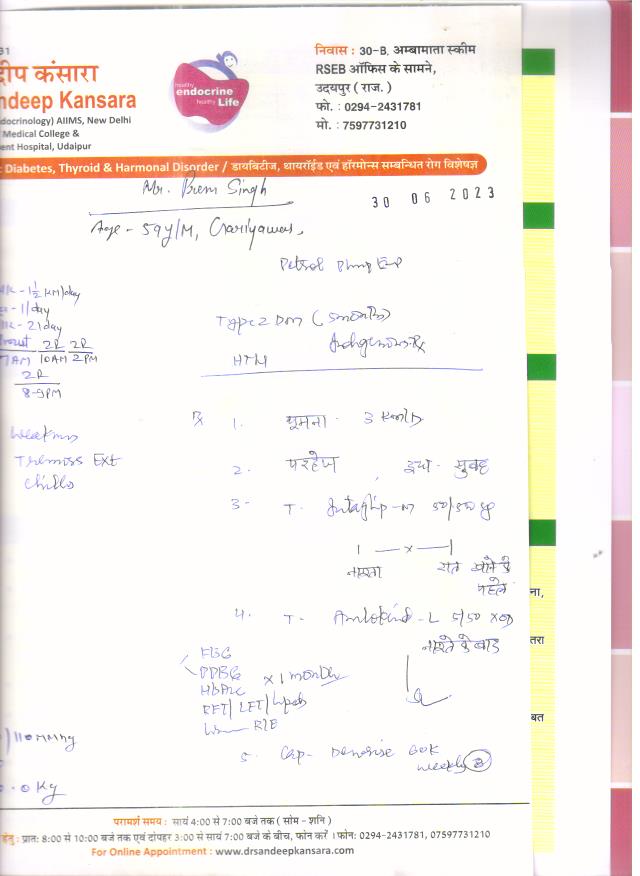 31
दीप कंसारा
ndeep Kansara
docrinology) AIIMS, New Delhi
Medical College &
ent Hospital, Udaipur
healthy
endocrine
healthy Life
निवास : 30-B, अम्बामाता स्कीम
RSEB ऑफिस के सामने,
उदयपुर ( राज. )
फो. : 0294-2431781
मो. : 7597731210
: Diabetes, Thyroid & Harmonal Disorder / डायबिटीज, थायरॉईड एवं हॉरमोन्स सम्बन्धित रोग विशेषज्ञ
Mr. Prem Singh
30 06 2023
Age - 59y/M, Gariyawas,
Petrol Pump
- 1½ KM/day
- 1/day
- 2/day
2R 2R
7AM 10AM 2PM
2R
8-9PM
Type 2 DM (5months)
HTN
Rx 1. घूमना - 3 Km/D
2. परहेज , सुबह
3- T. -M 50/500
1 — x — 1
नाश्ता रात खाने के
पहले
4. T- Amlokind-L 5/50 x OD
नाश्ते के बाद
Ext
chills
FBG
PPBG x 1 month
HbA1c
RFT/ LFT/ Lipids
R/E
5. Cap- 60K
weekly 8
/110 mmHg
.0 Kg
ना,
तरा
बत
परामर्श समय : सायं 4:00 से 7:00 बजे तक ( सोम - शनि )
हेतु : प्रात: 8:00 से 10:00 बजे तक एवं दोपहर 3:00 से सायं 7:00 बजे के बीच, फोन करें । फोन: 0294-2431781, 07597731210
For Online Appointment : www.drsandeepkansara.com